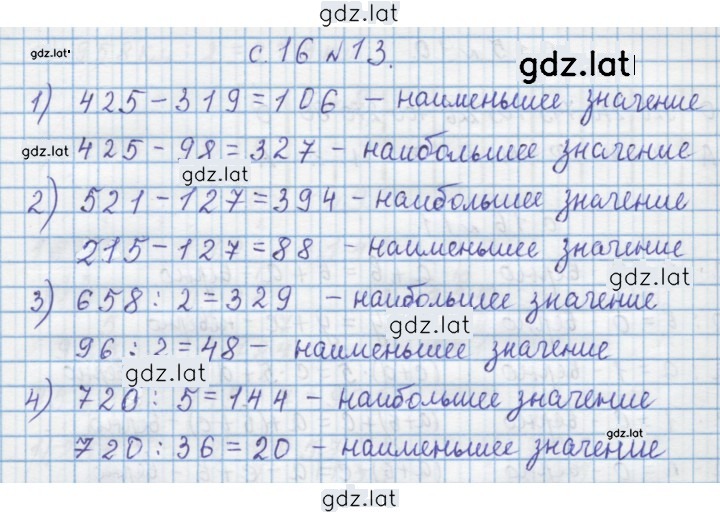 gdz.lat
gdz.lat
с. 16 № 13.
gdz.lat
1) 425 – 319 = 106 – наименьшее значение
gdz.lat
425 – 98 = 327 – наибольшее значение
gdz.lat
2) 521 – 127 = 394 – наибольшее значение
215 – 127 = 88 – наименьшее значение
gdz.lat
3) 658 : 2 = 329 – наибольшее значение
gdz.lat
96 : 2 = 48 – наименьшее значение
gdz.lat
4) 720 : 5 = 144 – наибольшее значение
gdz.lat
720 : 36 = 20 – наименьшее значение
gdz.lat